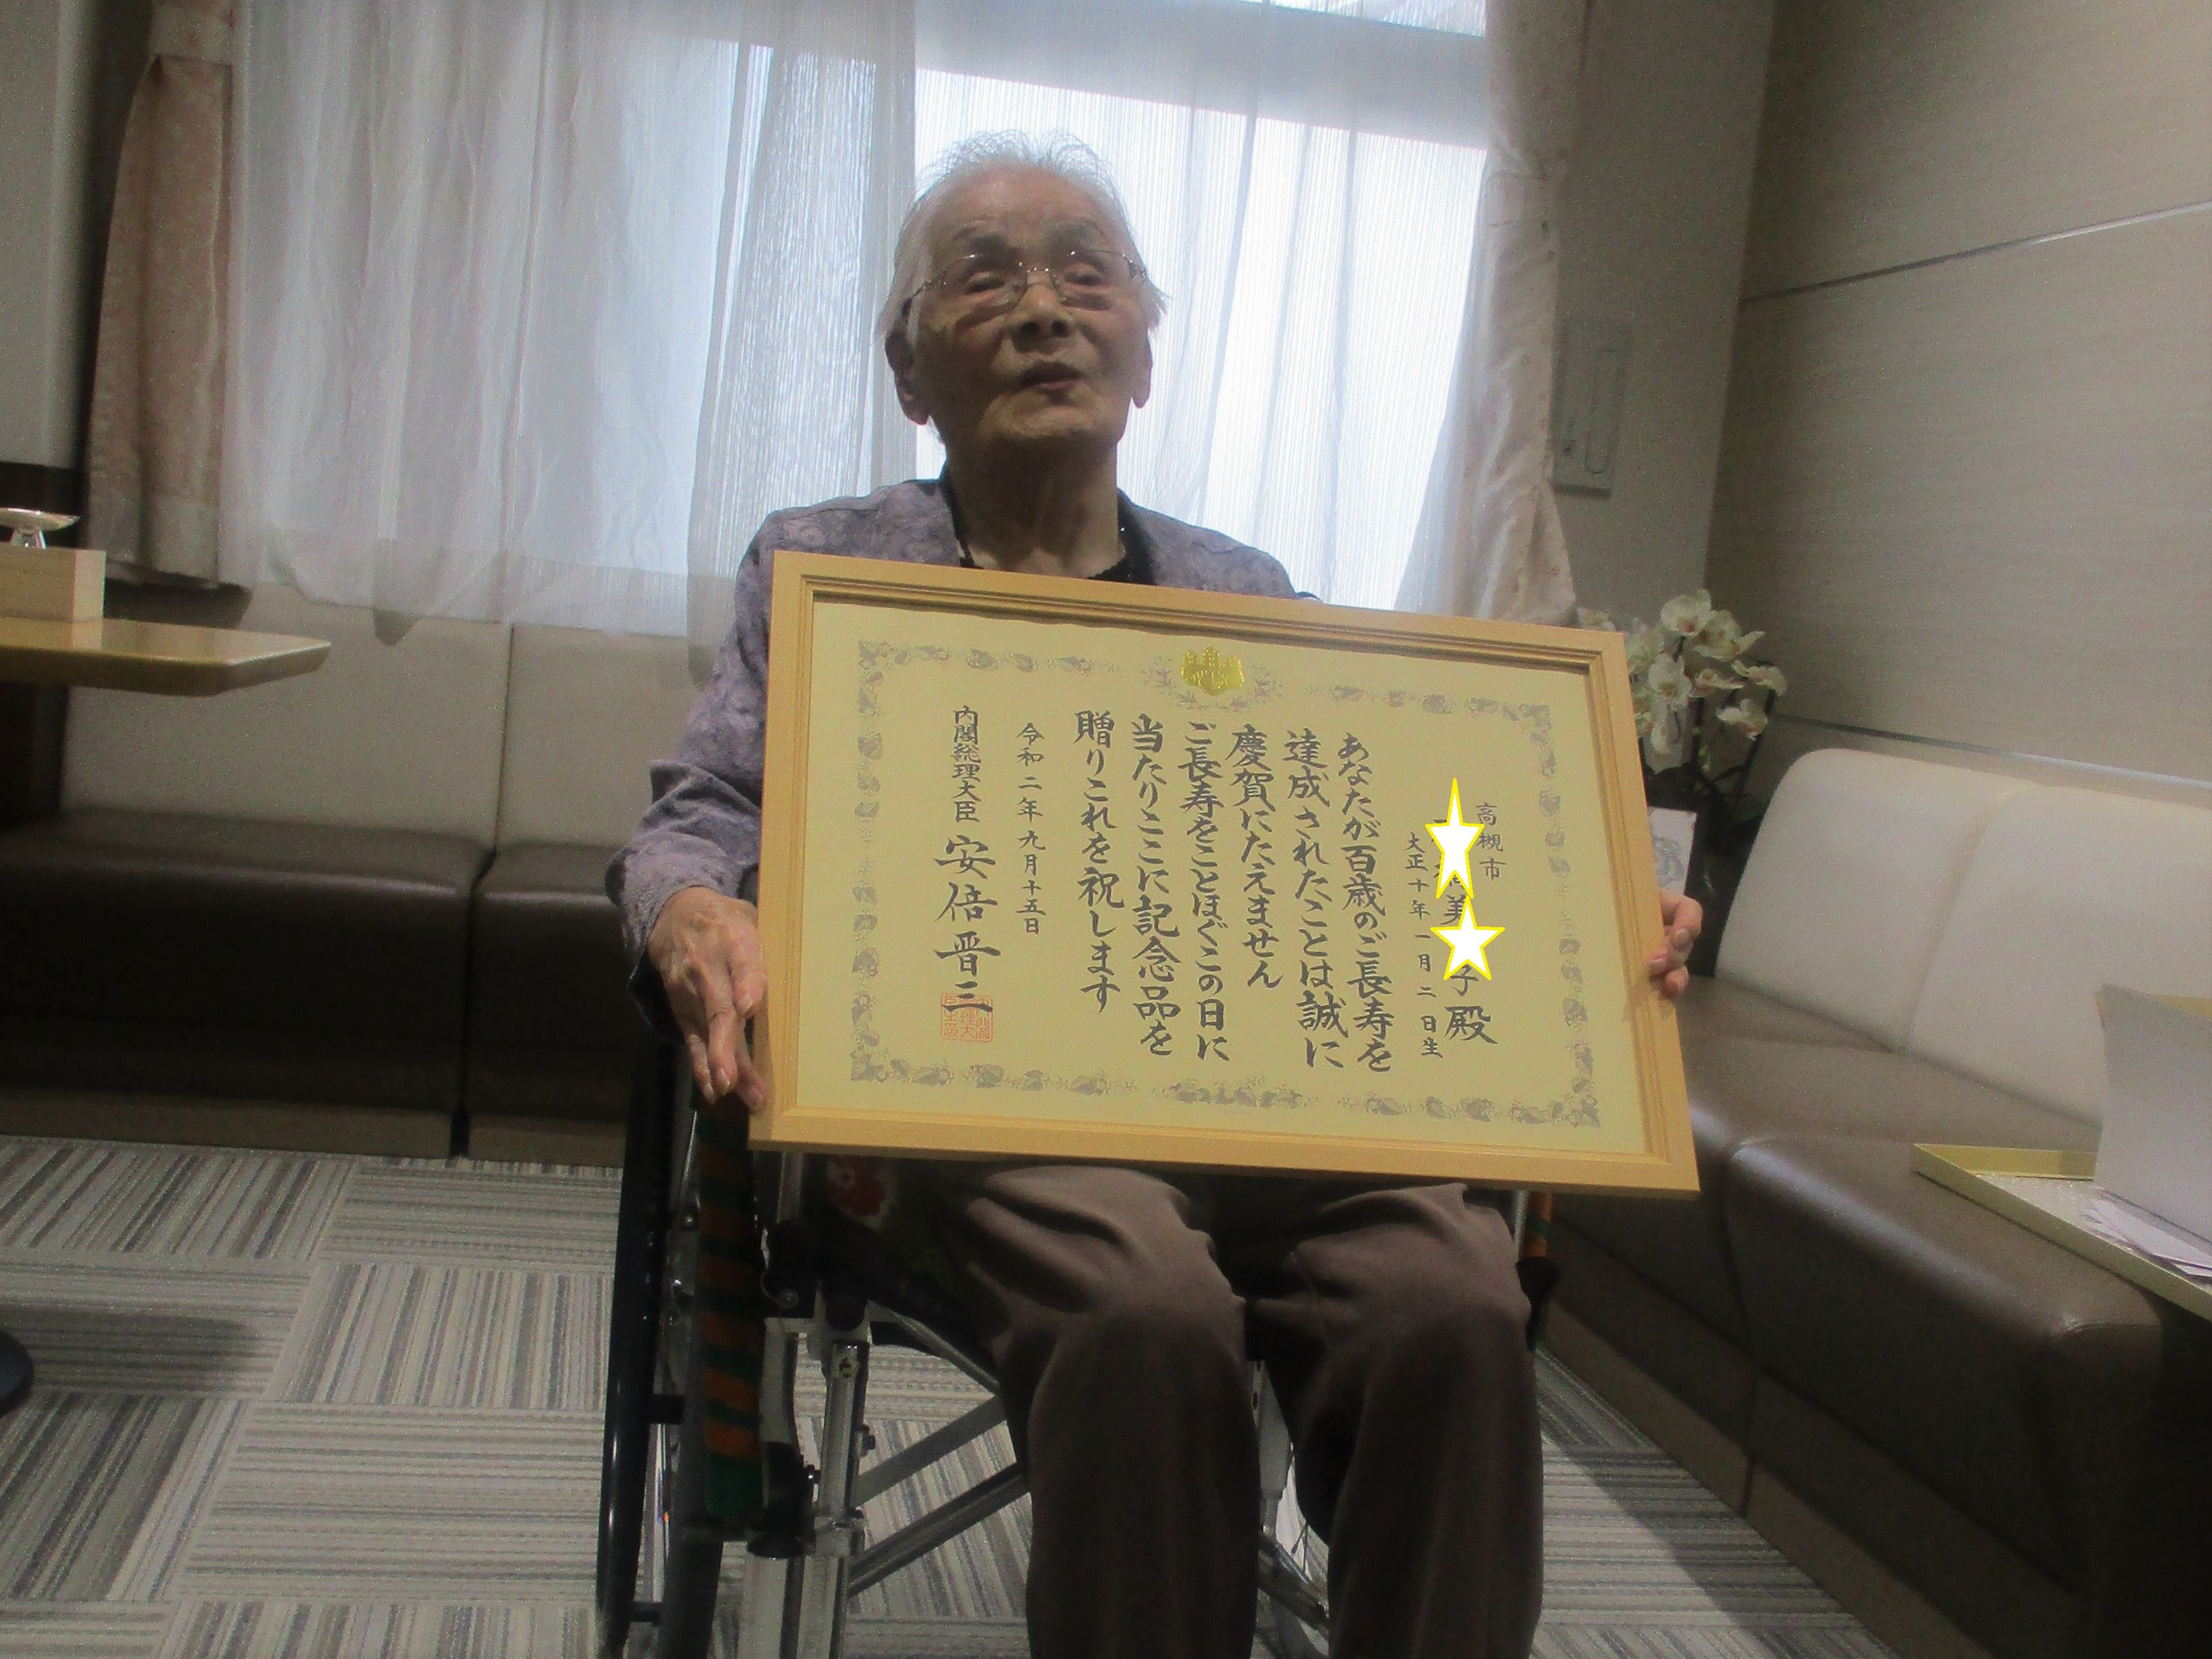 高槻市
美 子 殿
大正十年一月二日生
あなたが百歳のご長寿を
達成されたことは誠に
慶賀にたえません
ご長寿をことほぐこの日に
当たりここに記念品を
贈りこれを祝します
令和二年九月十五日
内閣総理大臣 安倍晋三